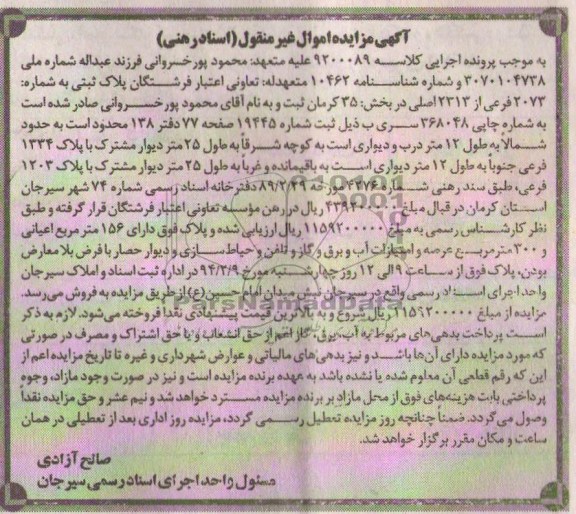 آگهی مزایده اموال غیر منقول (اسناد رهنی)
به موجب پرونده اجرایی کلاسه ۹۲۰۰۰۸۹ علیه متعهد: محمود پورخسروانی فرزند عبداله شماره ملی
۳۰۷۰۱۰۴۷۳۸ و شماره شناسنامه ۱۰۴۶۲ متعهدله: تعاونی اعتبار فرشتگان پلاک ثبتی به شماره:
۲۰۷۳ فرعی از ۲۳۱۳ اصلی در بخش: ۳۵ کرمان ثبت و به نام آقای محمود پورخسروانی صادر شده است
به شماره چاپی ۳۶۸۰۴۸ سری ب ذیل ثبت شماره ۱۹۴۴۵ صفحه ۷۷ دفتر ۱۳۸ محدود است به حدود
شمالا به طول ۱۲ متر درب و دیواری است به کوچه شرقاً به طول ۲۵ متر دیوار مشترک با پلاک ۱۳۳۴
فرعی جنوباً به طول ۱۲ متر دیواری است به باقیمانده و غرباً به طول ۲۵ متر دیوار مشترک با پلاک ۱۲۰۳
فرعی، طبق سند رهنی شماره مورخه دفترخانه اسناد رسمی شماره ۷۴ شهر سیرجان
استان کرمان در قبال مبلغ ریال در رهن مؤسسه تعاونی اعتبار فرشتگان قرار گرفته و طبق
نظر کارشناس رسمی به مبلغ ۱۱۵۹۲۰۰۰۰۰ ریال ارزیابی شده و پلاک فوق دارای ۱۵۶ متر مربع اعیانی
و ۳۰۰ متر مربع عرصه و امتیازات آب و برق و گاز و تلفن و حیاط سازی و دیوار حصار با فرض بلامعارض
بودن، پلاک فوق از ساعت ۹ الی ۱۲ روز چهارشنبه مورخ ۹۴/۲/۹ در اداره ثبت اسناد و املاک سیرجان
واحد اجرای اسناد رسمی واقع در سیرجان میدان امام حسین (ع) از طریق مزایده به فروش می‌رسد.
مزایده از مبلغ ۱۱۵۹۲۰۰۰۰۰ ریال شروع و به بالاترین قیمت پیشنهادی نقداً فروخته می‌شود. لازم به ذکر
است پرداخت بدهی‌های مربوط به آب، برق، گاز اعم از حق انشعاب و یا حق اشتراک و مصرف در صورتی
که مورد مزایده دارای آن‌ها باشد و نیز بدهی‌های مالیاتی و عوارض شهرداری و غیره تا تاریخ مزایده اعم از
این که رقم قطعی آن معلوم شده یا نشده باشد به عهده برنده مزایده است و نیز در صورت وجود مازاد، وجوه
پرداختی بابت هزینه‌های فوق از محل مازاد بر برنده مزایده مسترد خواهد شد و نیم عشر و حق مزایده نقداً
وصول می‌گردد. ضمناً چنانچه روز مزایده تعطیل رسمی گردد، مزایده روز اداری بعد از تعطیلی در همان
ساعت و مکان مقرر برگزار خواهد شد.
صالح آزادی
مسئول واحد اجرای اسناد رسمی سیرجان
ParsNamadData